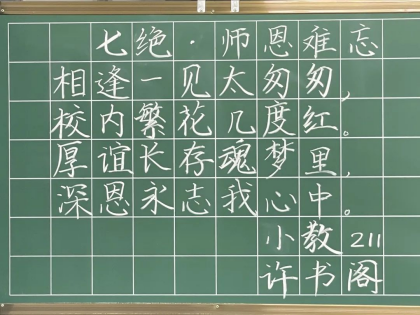 七绝·师恩难忘
相逢一见太匆匆，
校内繁花几度红。
厚谊长存魂梦里，
深恩永志我心中。
小教211
许书阁